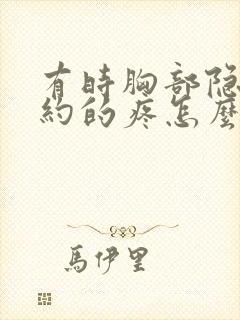 有時胸部隐
約的疼怎麼
馬伊里